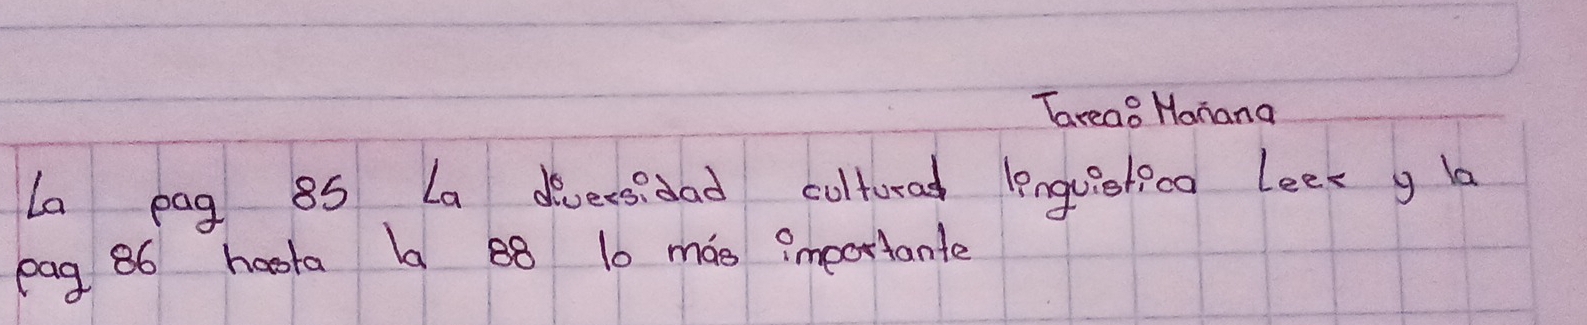 Tarea: Mañana
La pag 85 La diversidad cultural linguistica Leer y la
pag 86 hasta la 88 lo más importante